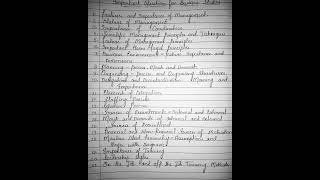 Important Questions for Business Studies
1 Features and Importance of Management
2 Nature of Management
3 Importance of Coordination
4 Scientific Management Principles and Techniques
5 Nature of Management Principles
6 Important Henri Fayol Principles
7 Business Environment - Features, Importance and
Dimensions
8 Planning - Process, Merits and Demerits
9 Organising - Process and Organising Structures
10 Delegation and Decentralisation - Meaning and
Importance
11 Elements of Delegation
12 Staffing Process
13 Selection Process
14 Sources of Recruitment - Internal and External
15 Merits and Demerits of Internal and External
Sources of Recruitment
16 Financial and Non-Financial Sources of Motivation
17 Maslow Need Hierarchy - Assumptions and
18 Importance of Training
19 Leadership Styles
20 On the Job and off the Job Training Methods